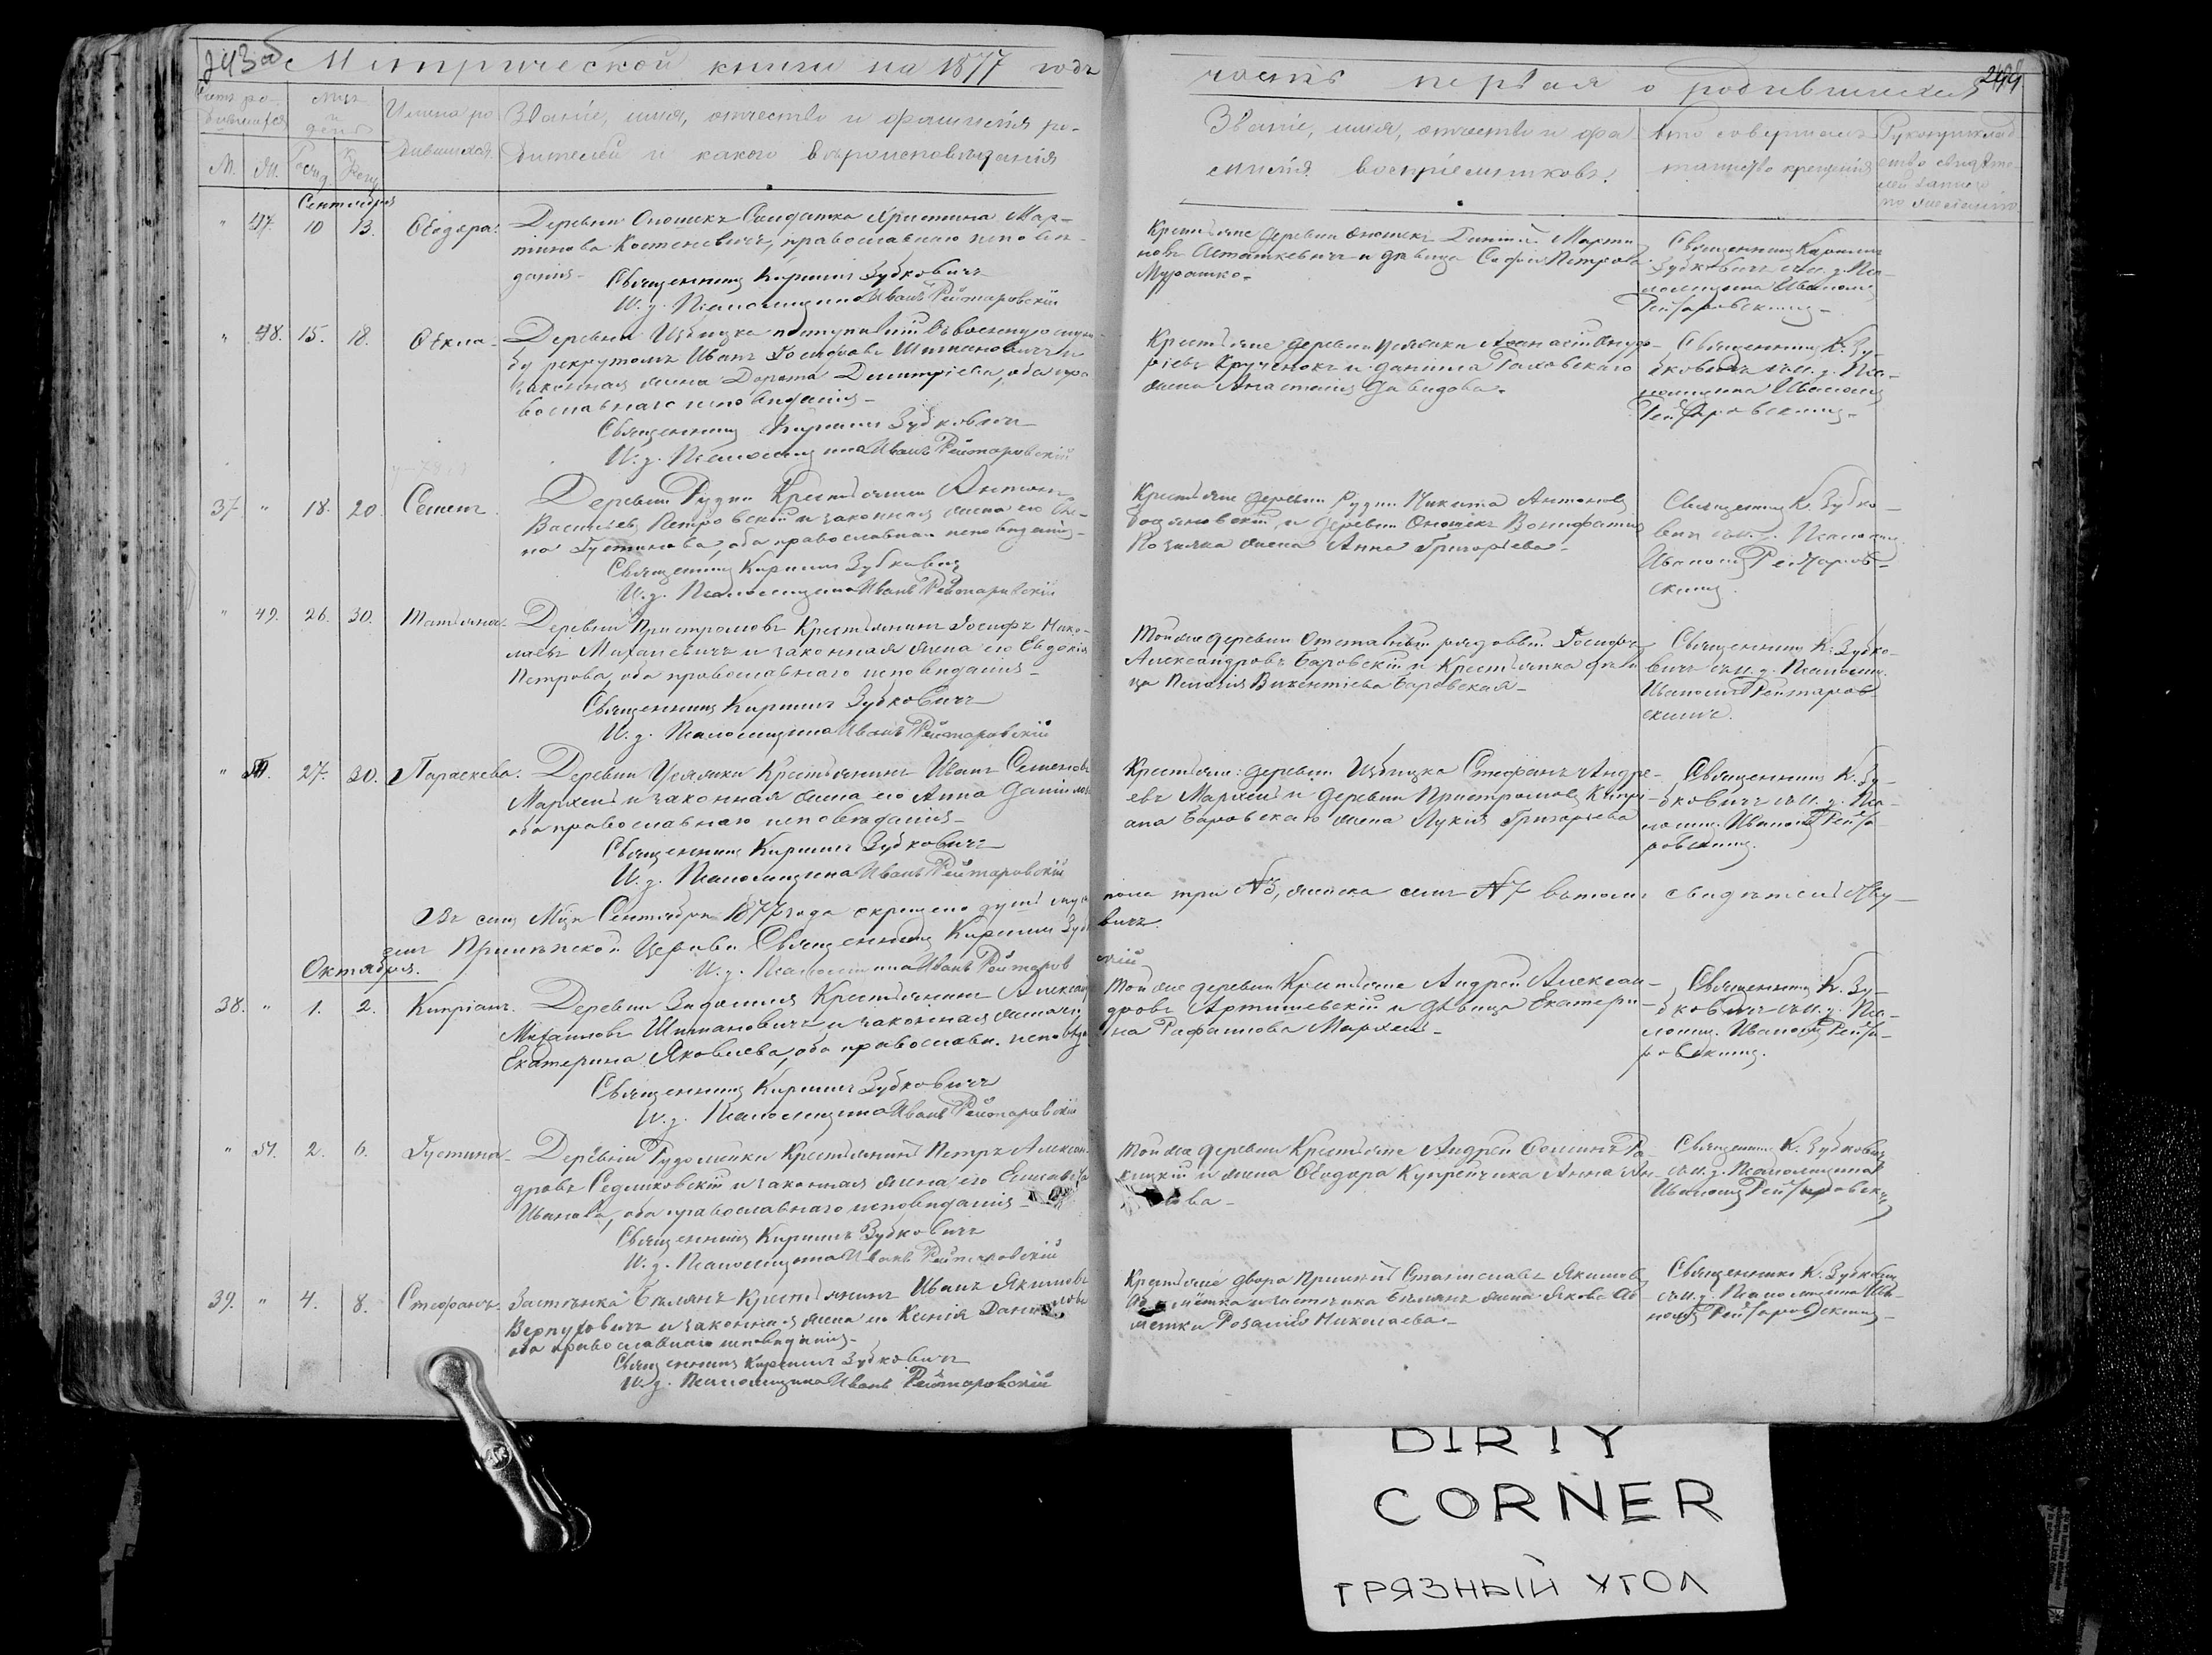 243об Метрической книги на 1877 годъ
Счетъ ро-
дившихся
Мцъ
и
день
Имена ро
дившихся.
Званіе, имя, отчество и фамилія ро-
дителей и какого вѣроисповѣданія
М. Ж. Рожд. Крещ.
Сентября
" 47. 10 13. Ѳеодора.
Деревни Оношекъ Солдатка Христина Мар-
тинова Костеневичъ, православнаго исповѣ-
данія-
Священникъ Кириллъ Зубковичъ
И. д. Псаломщика Иванъ Рейтаровскій
" 48. 15. 18. Ѳекла-
Деревни Избицка поступившій въ военную служ-
бу рекрутомъ Иванъ Іосифовъ Шимановичъ и
законная жена Дорота Димитріева, оба пра
вославнаго исповѣданія-
Священникъ Кириллъ Зубковичъ
И. д. Псаломщика Иванъ Рейтаровскій
37. " 18. 20. Семенъ.
Деревни Рудни Крестьянинъ Антонъ
Васильевъ Петровскій и законная жена его
Густинова, оба православнаго исповѣданія-
Священникъ Кириллъ Зубковичъ
И. д. Псаломщика Иванъ Рейтаровскій
" 49. 26. 30. Татьяна-
Деревни Пристромовъ Крестьянинъ Іосифъ Нико-
лаевъ Михалевичъ и законная жена его Евдокія
Петрова, оба православнаго исповѣданія-
Священникъ Кириллъ Зубковичъ
И. д. Псаломщика Иванъ Рейтаровскій
" 50. 27. 30. Параскева.
Деревни Уеляжи Крестьянинъ Иванъ Семеновъ
Мархель и законная жена его Анна Данилова
оба православнаго исповѣданія-
Священникъ Кириллъ Зубковичъ
И. д. Псаломщика Иванъ Рейтаровскій
Въ семъ Мцѣ Сентябрѣ 1877 года окрещено душъ муж
Церкви Священникъ Кириллъ Зуб
И. д. Псаломщика Иванъ Рейтаров
Октября.
38. " 1. 2. Кипріанъ.
Деревни Видомля Крестьянинъ Александръ
Михайловъ Шиманович и законная жена его
Екатерина Яковлева, оба православн. исповѣда
Священникъ Кириллъ Зубковичъ
И. д. Псаломщика Иванъ Рейтаровскій
" 51. 2. 6. Густина-
Деревни Рудомейки Крестьянинъ Петръ Алексан-
дровъ Седликовскій и законная жена его Елисавета
Иванова, оба православнаго исповѣданія-
Священникъ Кириллъ Зубковичъ
И. д. Псаломщика Иванъ Рейтаровскій
39. " 4. 8. Стефанъ.
Застѣнка Бѣлянъ Крестьянинъ Иванъ Якимовъ
Верпуховичъ и законная жена его Ксенія Данилова
оба православнаго исповѣданія-
Священникъ Кириллъ Зубковичъ
И. д. Псаломщика Иванъ Рейтаровскій
часть первая о родившихся
Званіе, имя, отчество и фа-
милія воспріемниковъ.
Кто совершалъ
таинство крещенія
Рукоприклад
ство свидѣте-
лей записи
по желанію
Крестьяне деревни Оношекъ Данiилъ Марти-
новъ Асташкевичъ и дѣвица Софія Петрова
Мурашко-
Священникъ Кириллъ
Зубковичъ съ И. д. Пса-
ломщика Иваномъ
Рейтаровскимъ-
Крестьяне деревни Уеляжи Аѳанасій
Крученокъ и Данiила Раховскаго
жена Анастасія Давидова.
Священникъ К. Зу-
бковичъ съ И. д. Пса-
ломщика Иваномъ
Рейтаровскимъ-
Крестьяне деревни Рудни Никита Антоновъ
и деревни Оношекъ Вонифатія
жена Анна Григорьева-
Священникъ К. Зубко-
вичъ съ И. д. Псаломщ.
Иваномъ Рейтаров-
скимъ.
Той же деревни Отставный рядовый Іосифъ
Александровъ Баровскій и Крестьянка дѣви
ца Пелагія Викентіева Баровская-
Священникъ К. Зубко-
вичъ съ И. д. Псаломщ.
Иваномъ Рейтаров
скимъ.
Крестьяне: деревни Избицка Стефанъ Андре-
евъ Мархель и деревни Пристромовъ Кипрі-
ана Баровскаго жена Лукія Григорьева
Священникъ К. Зу-
бковичъ съ И. д. Пса-
ломщ. Иваномъ Рейта-
ровскимъ.
пола три №3, женска семь №7 въ томъ свидѣтельству-
вичъ.
скій
Той же деревни Крестьяне Андрей Алексан-
дровъ Артишевскій и дѣвица Екатери-
на Рафаилова Мархель-
Священникъ К. Зу-
бковичъ съ И. д. Пса-
ломщ. Иваномъ Рейта-
ровскимъ.
Той же деревни Крестьяне Андрей
и жена Ѳеодора Купрейчика Анна
ва-
Священникъ К. Зубковичъ
съ И. д. Псаломщика
Иваномъ Рейтаровскимъ
Крестьяне двора Станиславъ Якимовъ
и застѣнка Бѣлянъ жена Якова
Розалія Николаева-
Священникъ К. Зубковичъ
съ И. д. Псаломщика Ива-
номъ Рейтаровскимъ-
DIRTY
CORNER
ГРЯЗНЫЙ УГОЛ